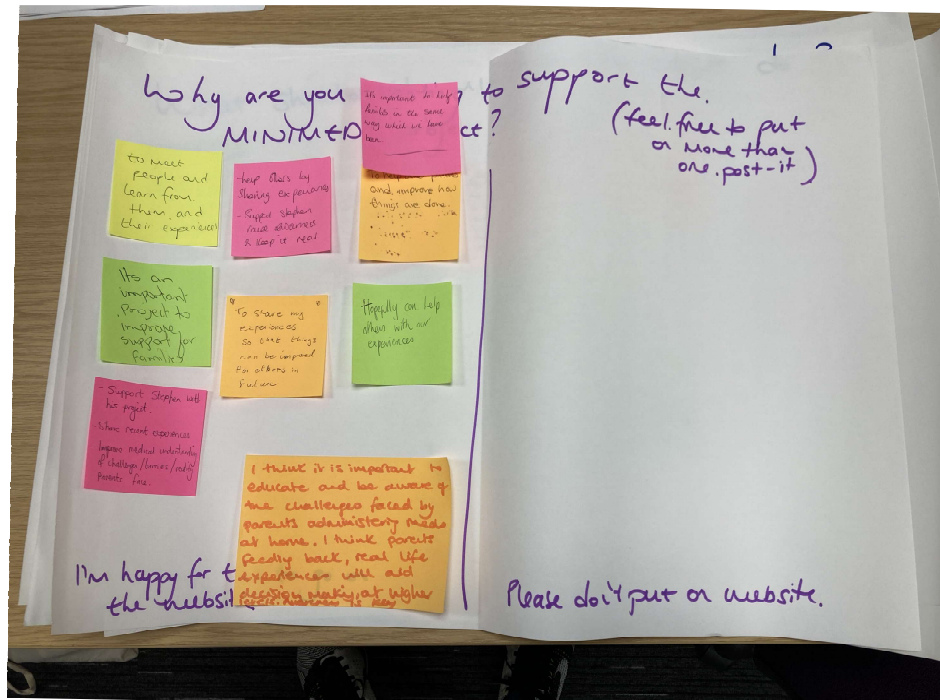 Why are you to support the.
MINIMED ct?
(feel free to put
on more than
one post-it)
It's important to help
families in the same
way which we have
been
To meet
people and
learn from
them, and
their experiences
- help others by
sharing experiences
- Support Stephen
raise awareness
& keep it real
and improve how
things are done.
Its an
important
project to
improve
support for
families
To share my
experiences
so that things
can be improved
for others in
future
Hopefully can help
others with our
experiences
- Support Stephen with
his project.
- Share recent experiences
Improve medical understanding
of challenges/barriers/reality
parents face.
I think it is important to
educate and be aware of
the challenges faced by
parents administering meds
at home. I think parents
feedly back, real life
experiences will aid
decision making, at higher
is key
I'm happy for t
the website
Please don't put on website.